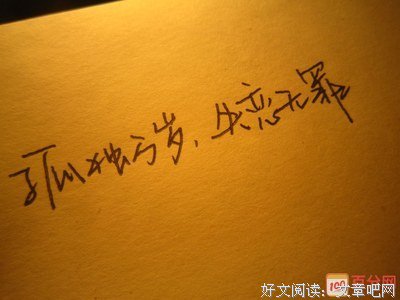 孤独万岁，失恋无罪
百分网
100
好文阅读：文章吧网